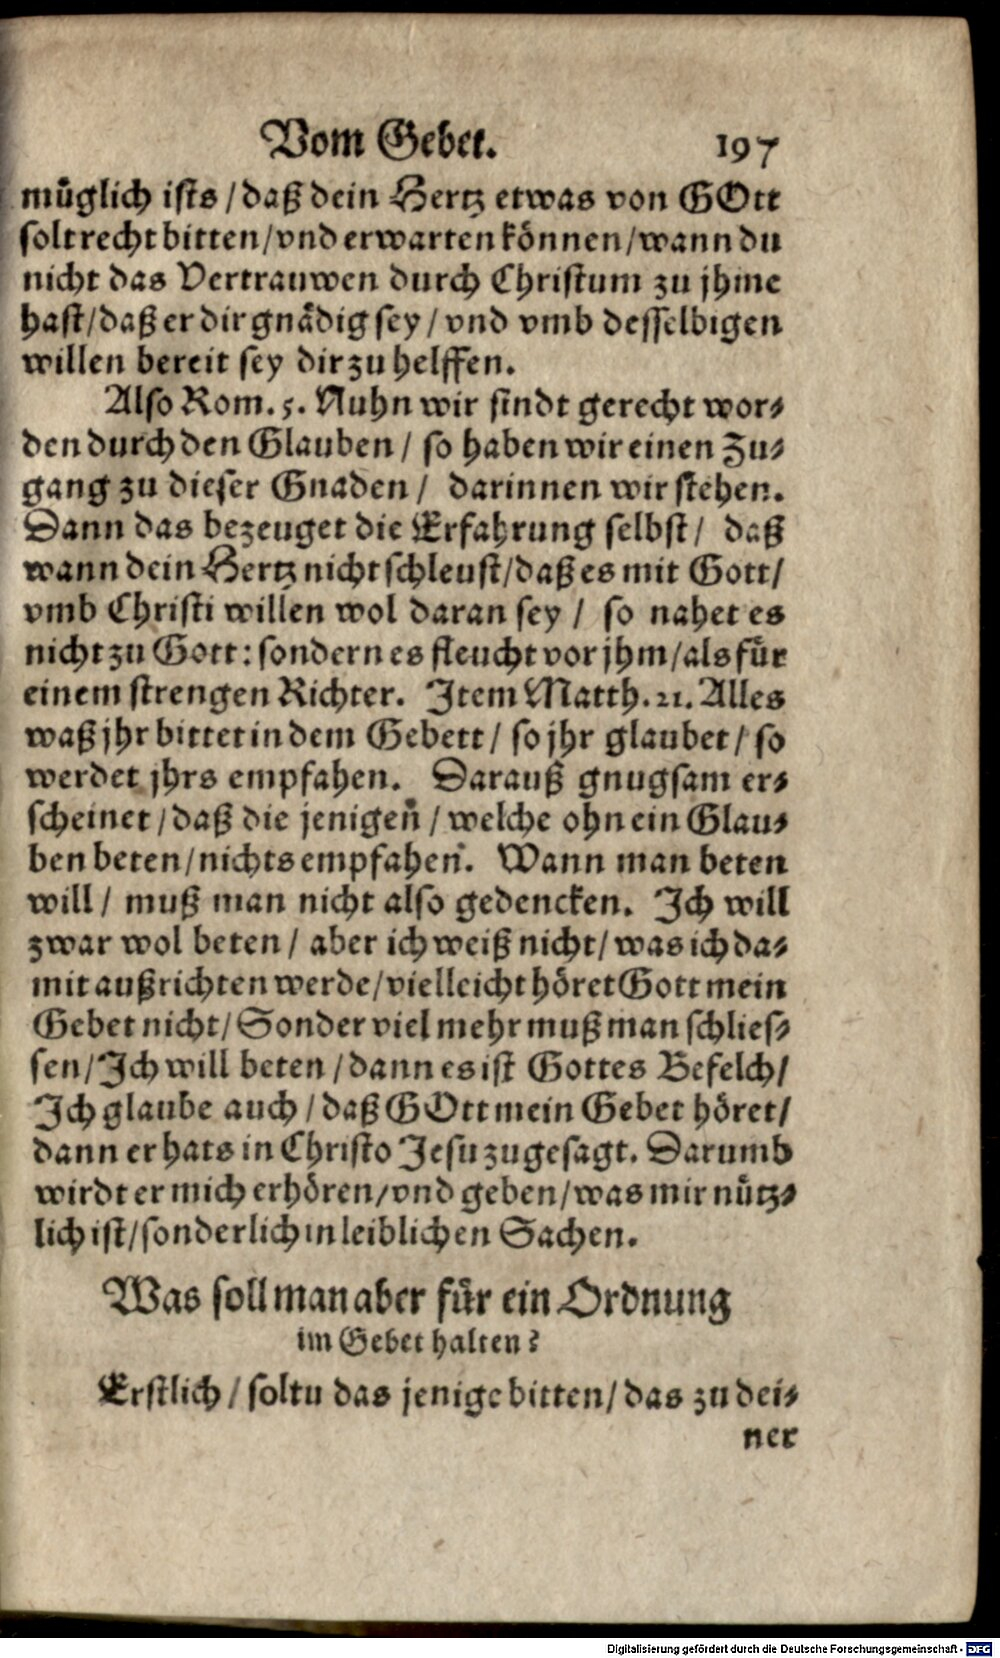 Vom Gebet. 197
müglich ists / daß dein Hertz etwas von GOtt
solt recht bitten / vnd erwarten können / wann du
nicht das Vertrauwen durch Christum zu jhme
hast / daß er dir gnädig sey / vnd vmb desselbigen
willen bereit sey dir zu helffen.
Also Rom. 5. Nuhn wir sindt gerecht wor-
den durch den Glauben / so haben wir einen Zu-
gang zu dieser Gnaden / darinnen wir stehen.
Dann das bezeuget die Erfahrung selbst / daß
wann dein Hertz nicht schleust / daß es mit Gott /
vmb Christi willen wol daran sey / so nahet es
nicht zu Gott: sondern es fleucht vor jhm / als für
einem strengen Richter. Item Matth. 21. Alles
waß jhr bittet in dem Gebett / so jhr glaubet / so
werdet jhrs empfahen. Darauß gnugsam er-
scheinet / daß die jenigen / welche ohn ein Glau-
ben beten / nichts empfahen. Wann man beten
will / muß man nicht also gedencken. Ich will
zwar wol beten / aber ich weiß nicht / was ich da-
mit außrichten werde / vielleicht höret Gott mein
Gebet nicht / Sonder viel mehr muß man schlies-
sen / Ich will beten / dann es ist Gottes Befelch /
Ich glaube auch / daß GOtt mein Gebet höret /
dann er hats in Christo Jesu zugesagt. Darumb
wirdt er mich erhören / vnd geben / was mir nütz-
lich ist / sonderlich in leiblichen Sachen.
Was soll man aber für ein Ordnung
im Gebet halten?
Erstlich / soltu das jenige bitten / das zu dei-
ner
Digitalisierung gefördert durch die Deutsche Forschungsgemeinschaft - DFG